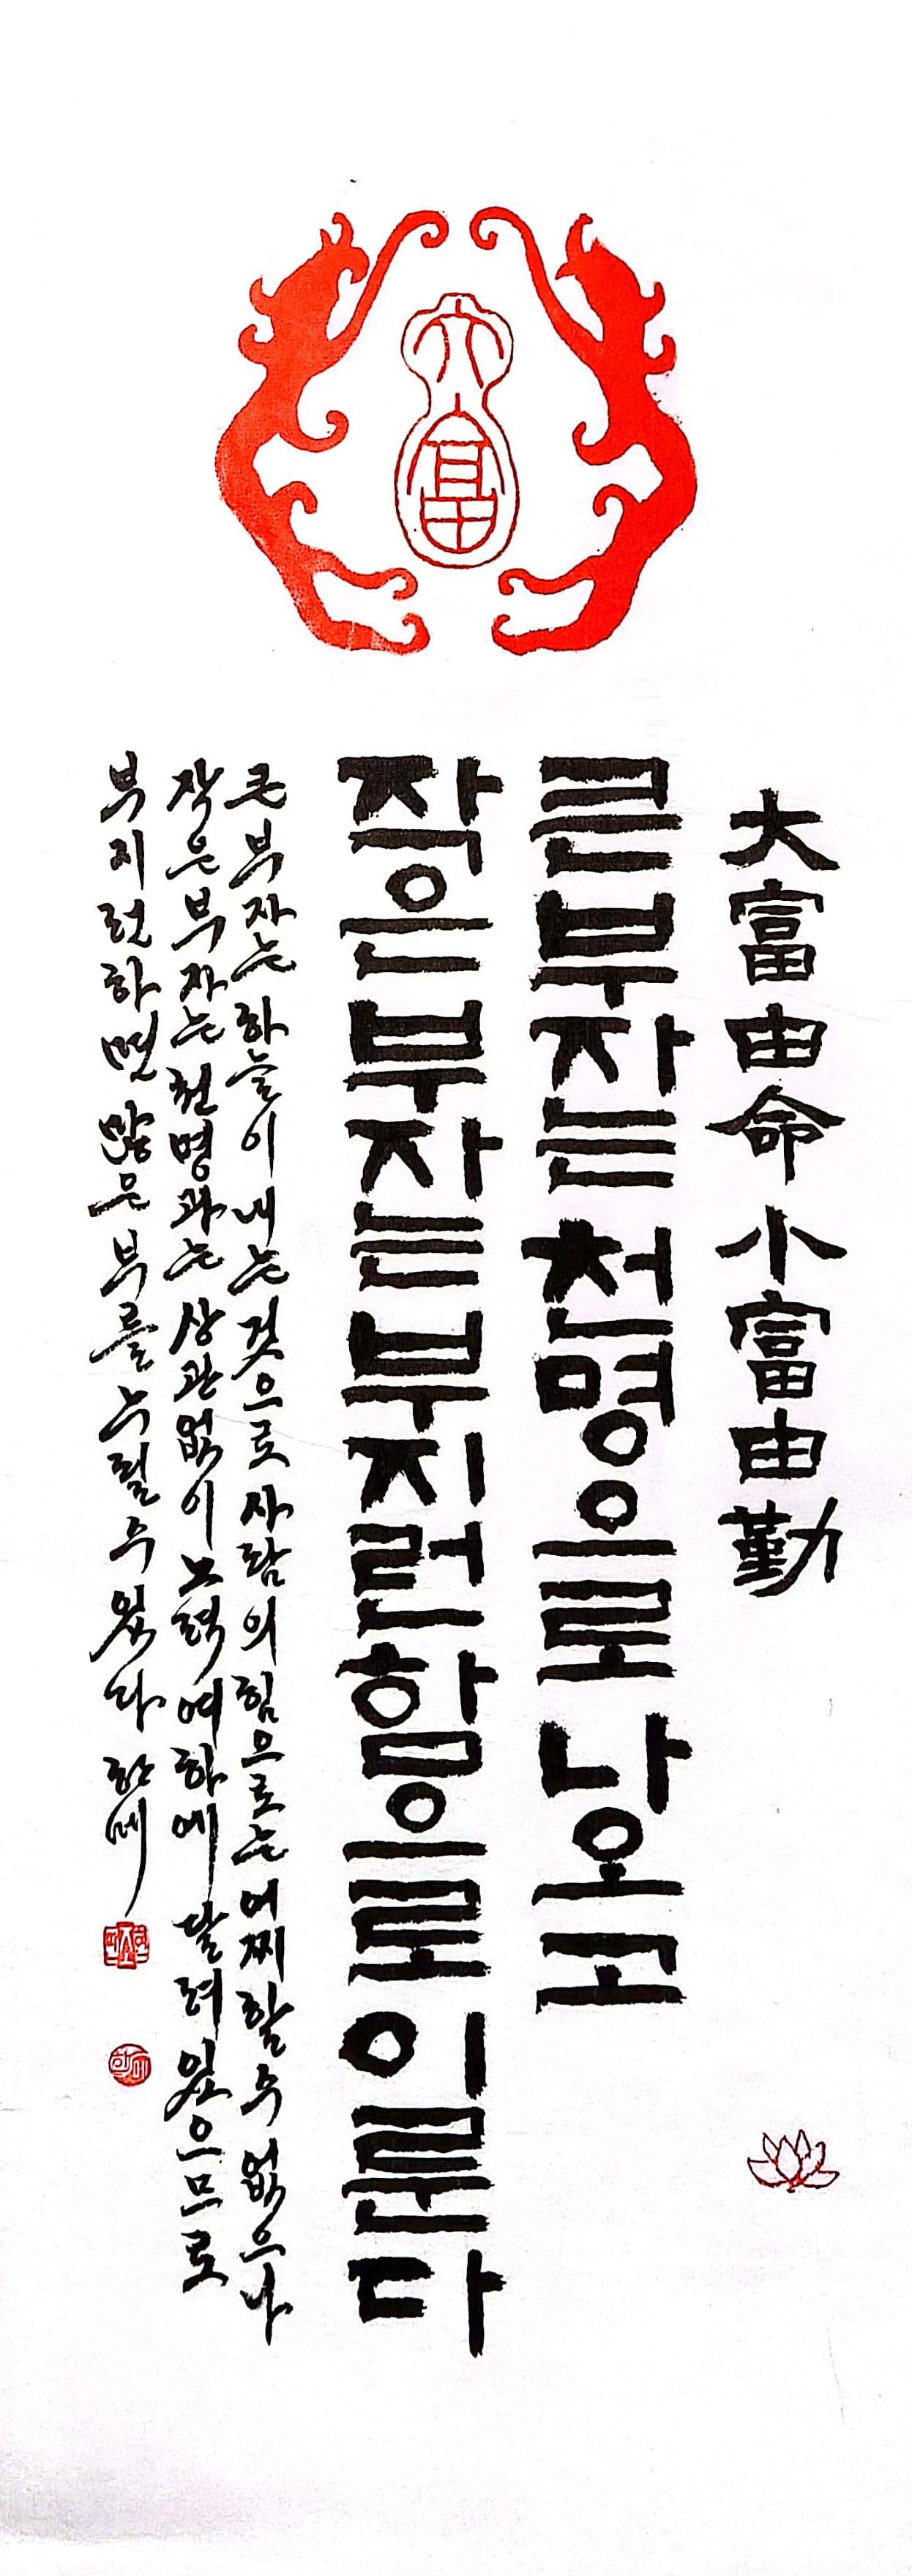 大富
大富由命小富由勤
큰부자는 천명으로 나오고
작은부자는 부지런함으로 이룬다
큰 부자는 하늘이 내는 것으로 사람의 힘으로는 어찌 할 수 없으나
작은 부자는 천명과는 상관없이 노력 여하에 달려 있으므로
부지런하면 많은 부를 누릴 수 있다 한메